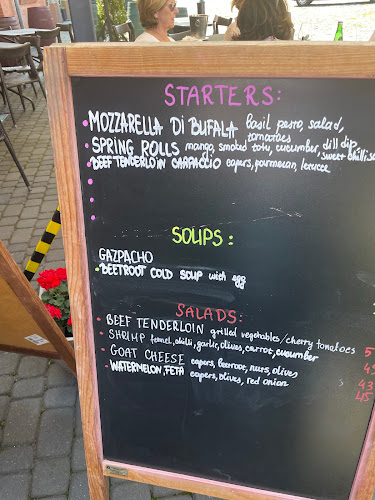 STARTERS:
MOZZARELLA DI BUFALA basil pesto, salad,
tomatoes
SPRING ROLLS mango, smoked tofu, cucumber, dill dip
sweet chilli
BEEF TENDERLOIN CARPACCIO capers, parmesan, lettuce
SOUPS:
GAZPACHO
BEETROOT COLD SOUP with egg
SALADS:
BEEF TENDERLOIN grilled vegetables/cherry tomatoes
SHRIMP fennel, chilli, garlic, olives, carrot, cucumber
GOAT CHEESE capers, beetroot, nuts, olives 43
WATERMELON, FETA capers, olives, red onion 45